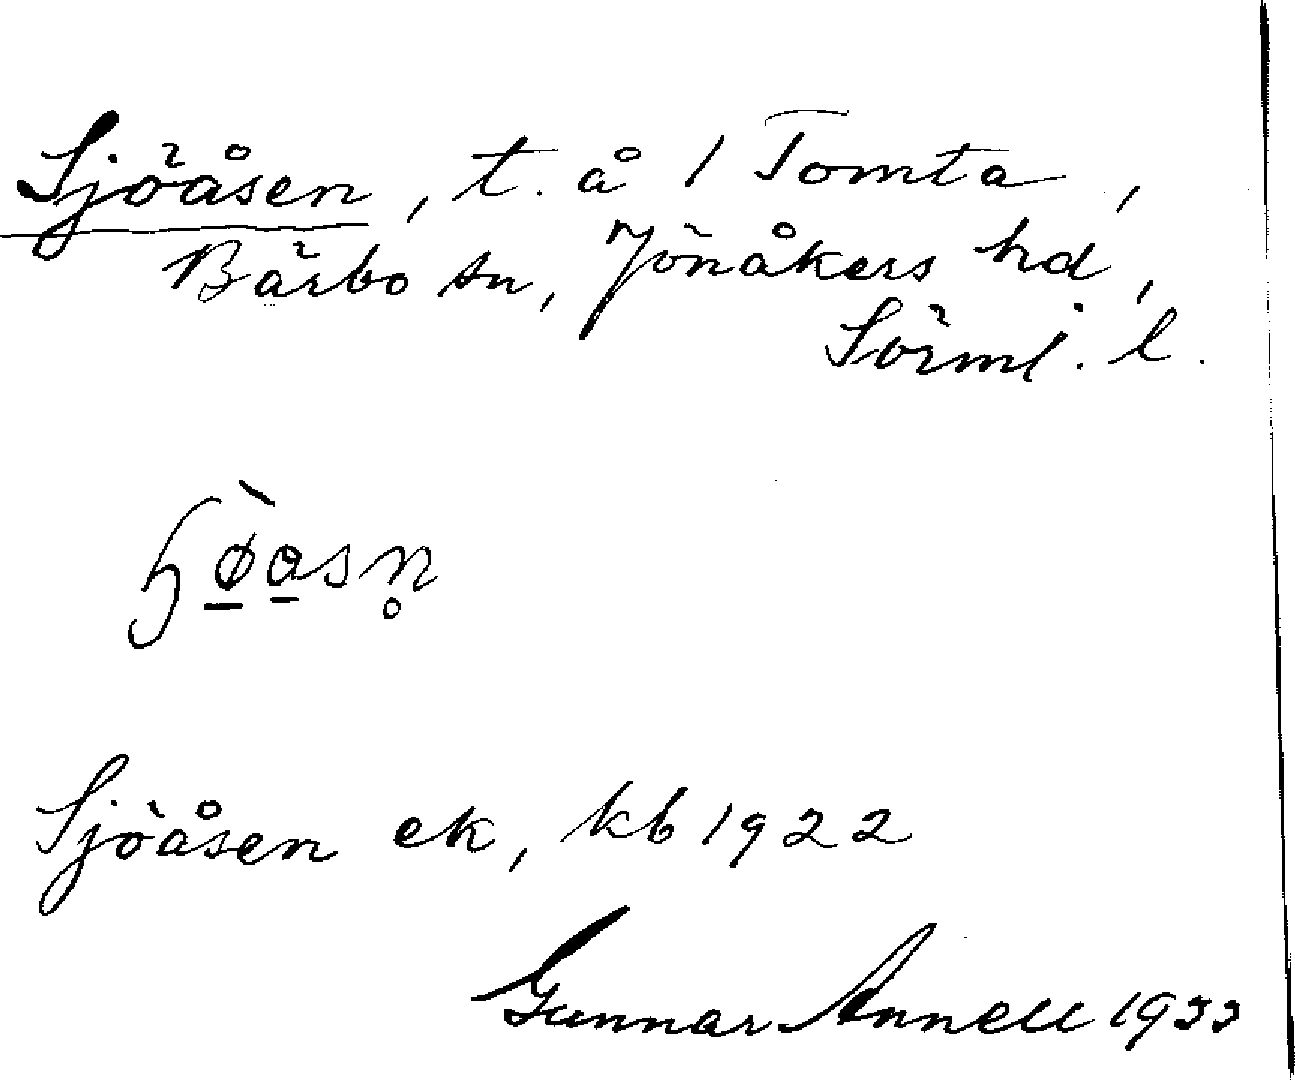 Sjöåsen, t. å 1 Tomta,
Bärbo sn, Jönåkers hd,
Sörml. l.
ɧø̠̀a̠sn̥
Sjöåsen ek, kb 1922
Gunnar Annell 1933